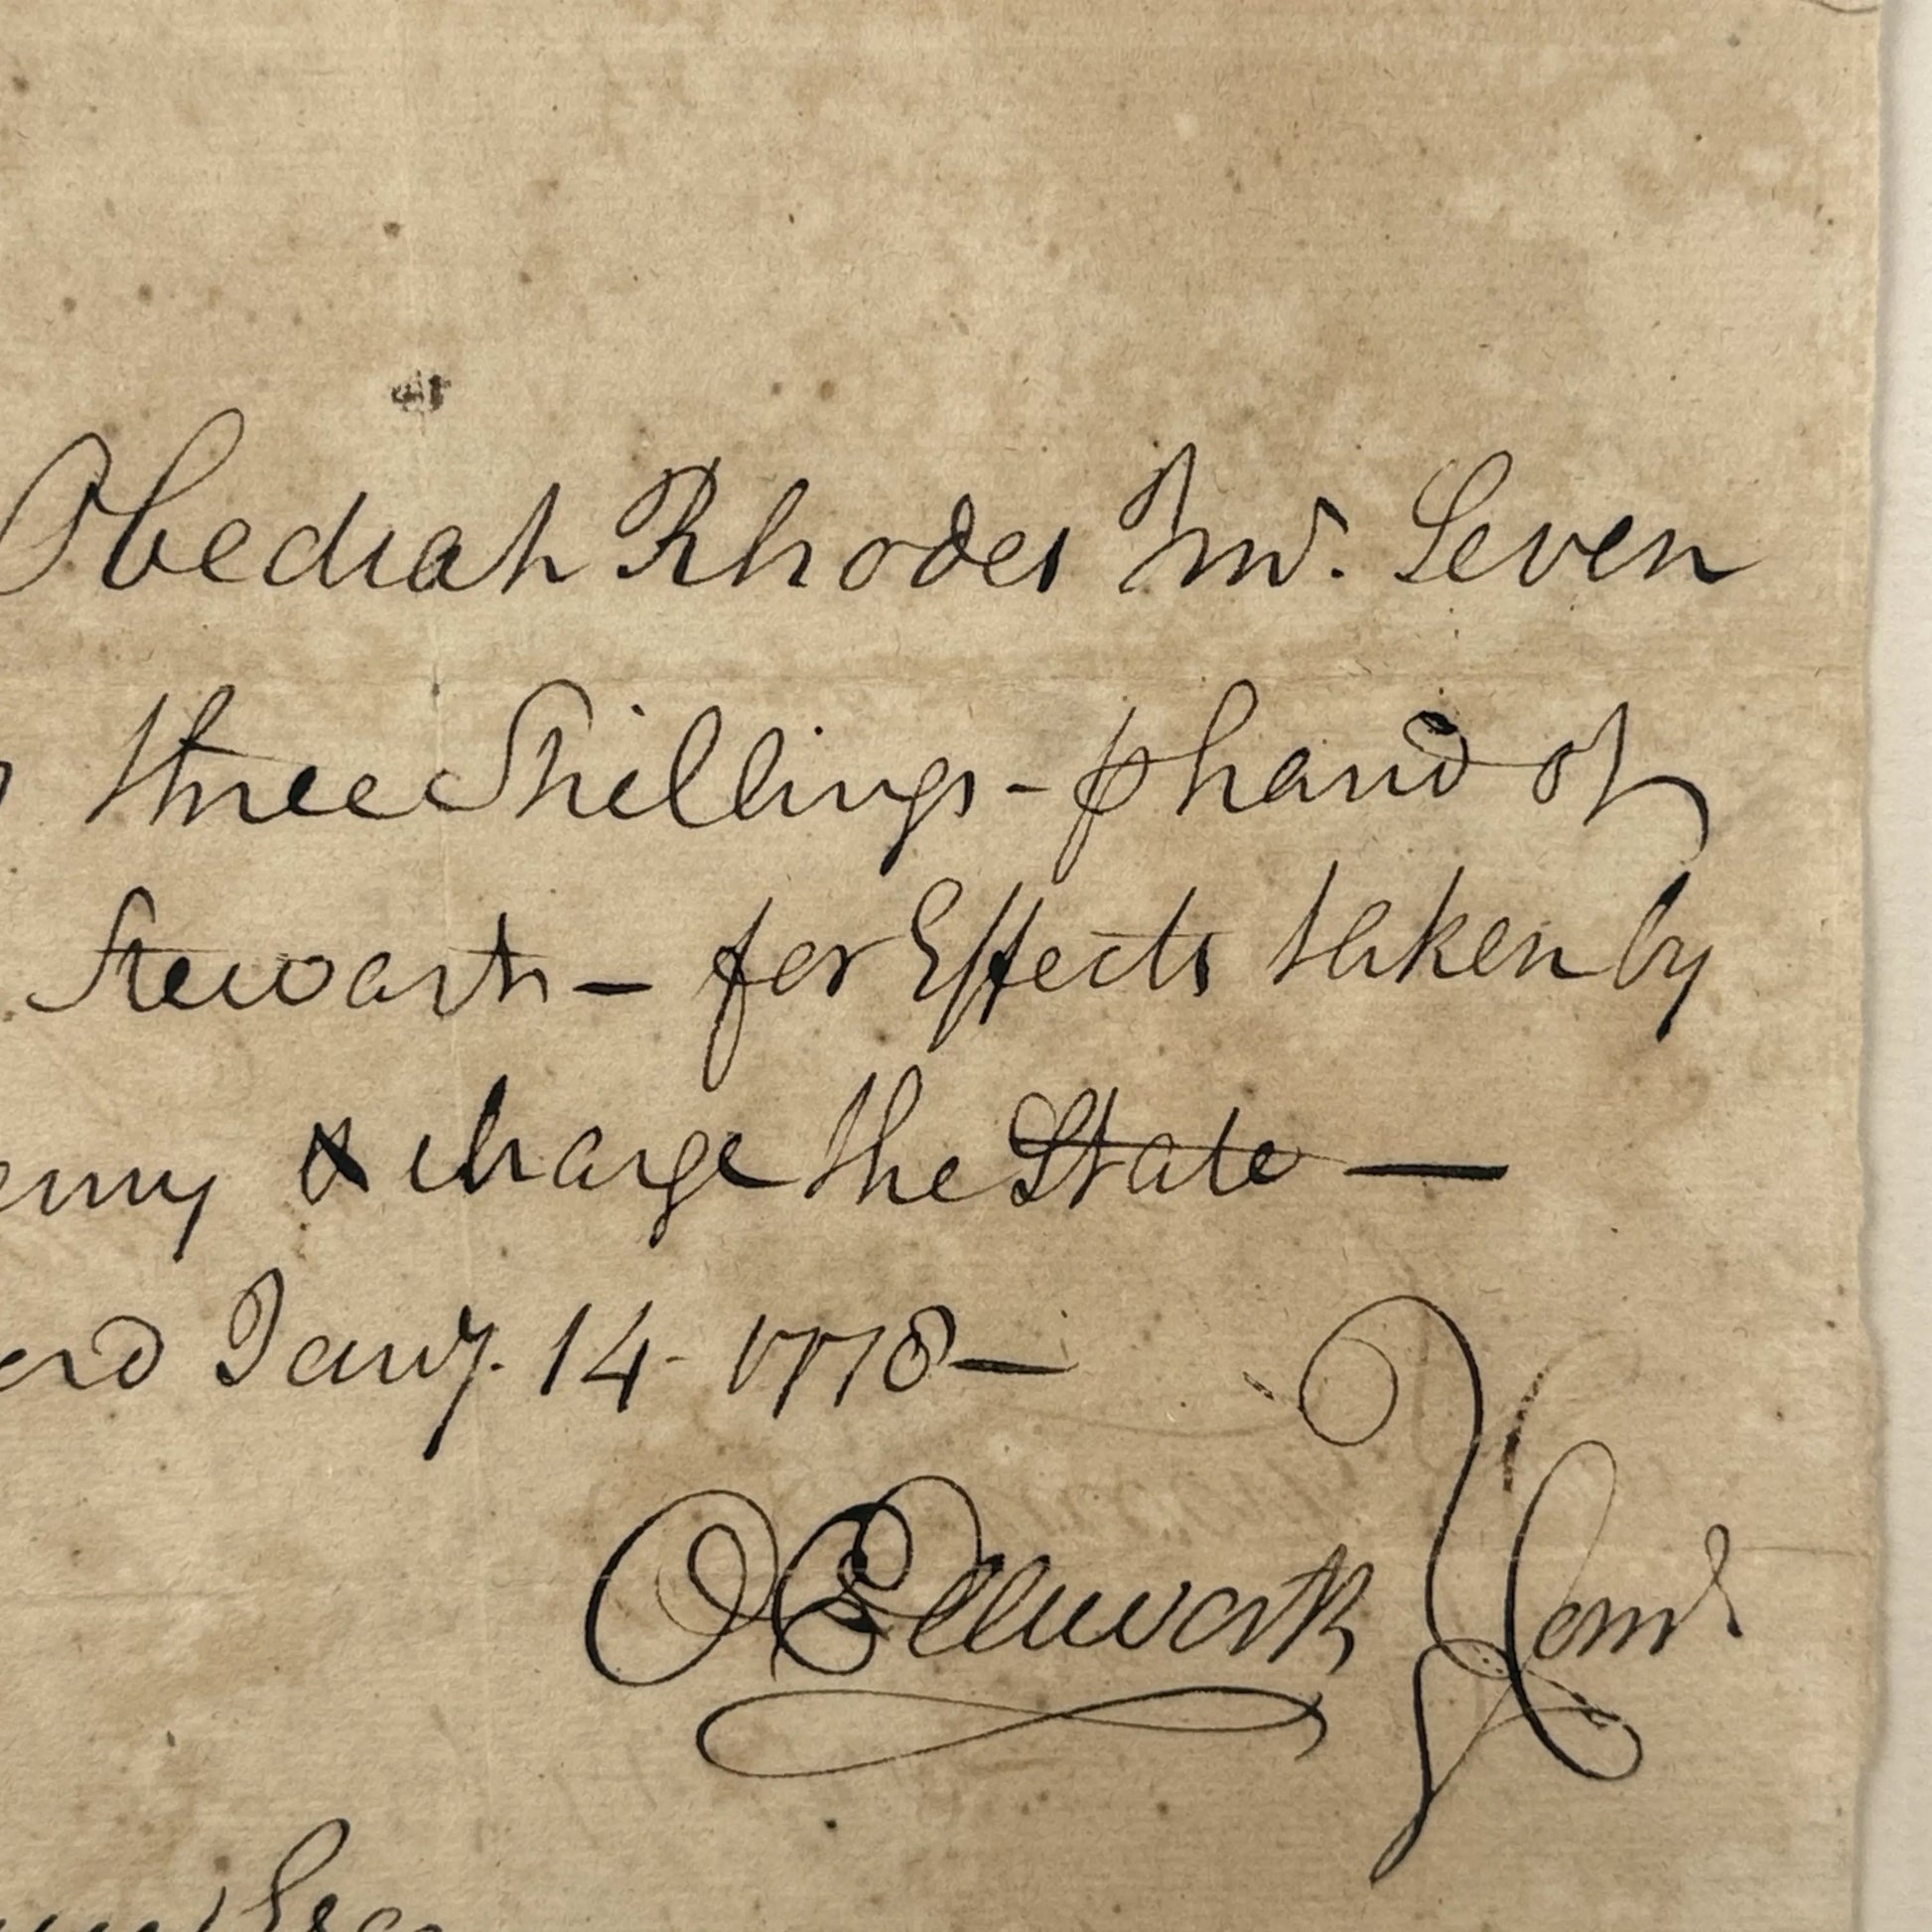 Obediah Rhodes Junr. Seven
three Shillings - ⅌ hand of
Stewart - for Effects taken by
& charge the State —
Jany. 14 - 1778 —
O Ellsworth } Comtt
Esq